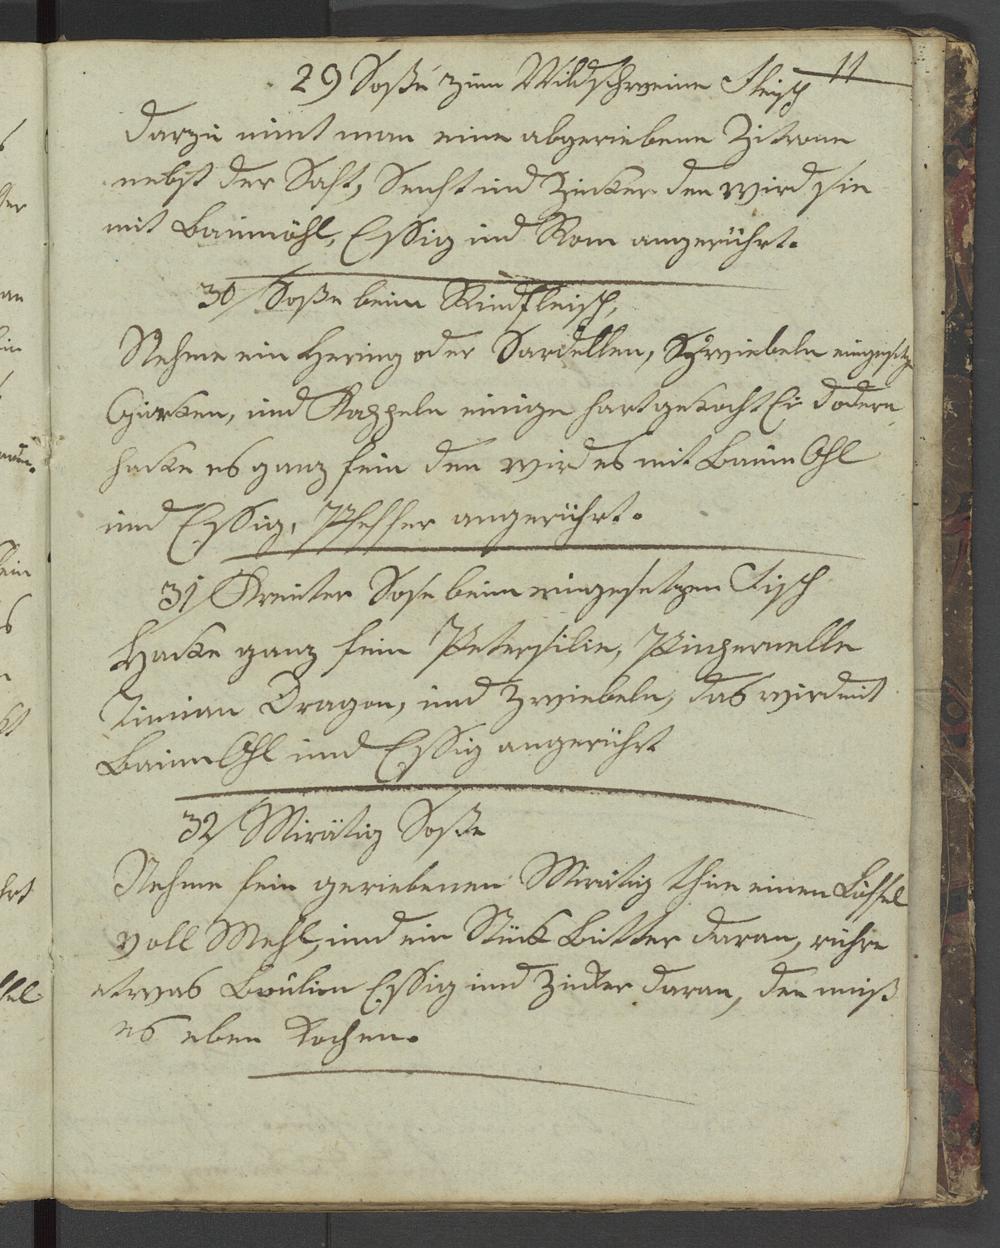 11
29 Soße zum Wildschweine Fleisch
Darzu nimt man eine abgeriebene Zitrone
nebst der Saft, Senft und Zucker den wird sie
mit Baumöhl, Essig und Rom angerührt.
30/ Soße beim Rindfleisch,
Nehme ein Hering oder Sardellen, Zwiebeln
Gurken, und Kappeln einige hartgekocht Ei dodern
hacke es ganz fein den wird es mit Baum Öhl
und Essig, Pfeffer angerührt.
31/ Kreuter Sose beim eingesetzen Fisch
Hacke ganz fein Petersilie, Pinpernelle
Timian Dragon, und Zwiebeln, das wird mit
Baum Öhl und Essig angerührt
32/ Mirätig Soße
Nehme fein geriebenen Mirätig thue einen Löffel
voll Mehl, und ein Stück Butter daran, rühre
etwas Boulion Essig und Zucker daran, den muß
es eben Kochen.